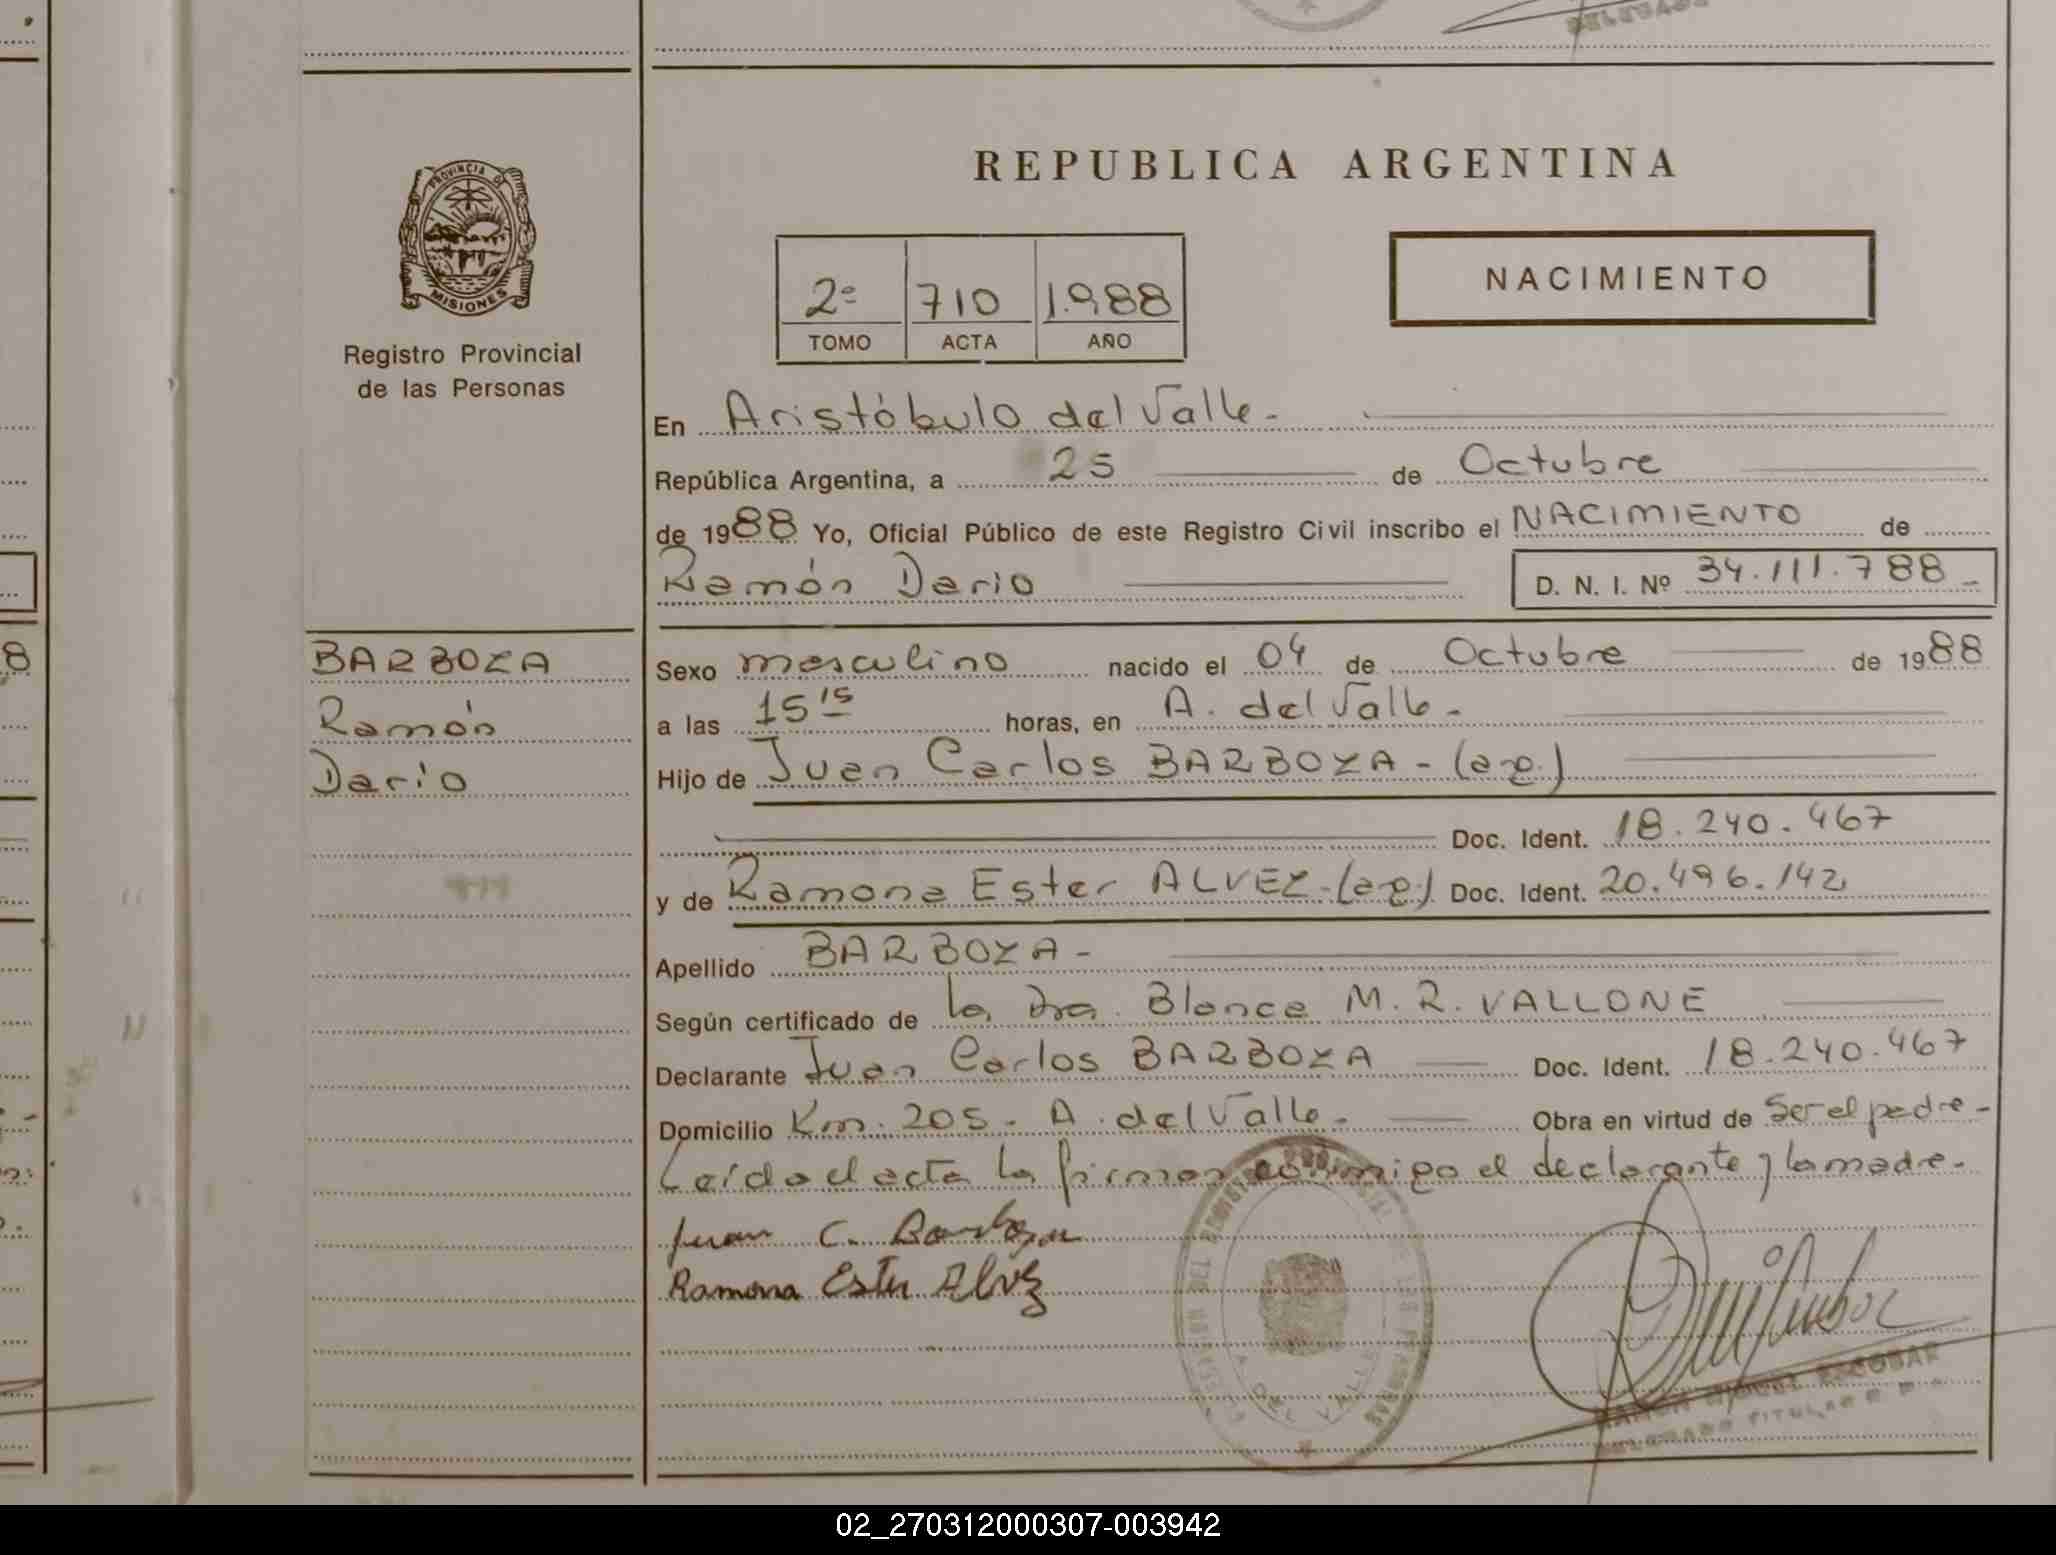 REPUBLICA ARGENTINA
PROVINCIA DE
MISIONES
Registro Provincial
de las Personas
2º 710 1.988
TOMO ACTA AÑO
NACIMIENTO
En Aristóbulo del Valle -
República Argentina, a 25 de Octubre
de 1988 Yo, Oficial Público de este Registro Civil inscribo el NACIMIENTO de
Ramón Dario
D. N. I. Nº 34.111.788 -
BARBOZA
Ramón
Dario
Sexo masculino nacido el 04 de Octubre de 1988
a las 15 15 horas, en A. del Valle -
Hijo de Juan Carlos BARBOZA - (a-g.)
Doc. Ident. 18.240.467
y de Ramona Ester ALVEZ - (a-g.) Doc. Ident. 20.496.142
Apellido BARBOZA -
Según certificado de la Dra. Blanca M. R. VALLONE
Declarante Juan Carlos BARBOZA Doc. Ident. 18.240.467
Domicilio Km. 205 - A. del Valle - Obra en virtud de Ser el padre -
Leído el acta la firman conmigo el declarante y la madre -
Juan C. Barboza
Ramona Ester Alvez
A. DEL VALLE
RAMON MIGUEL ESCOBAR
DELEGADO TITULAR R. P.
02_270312000307-003942